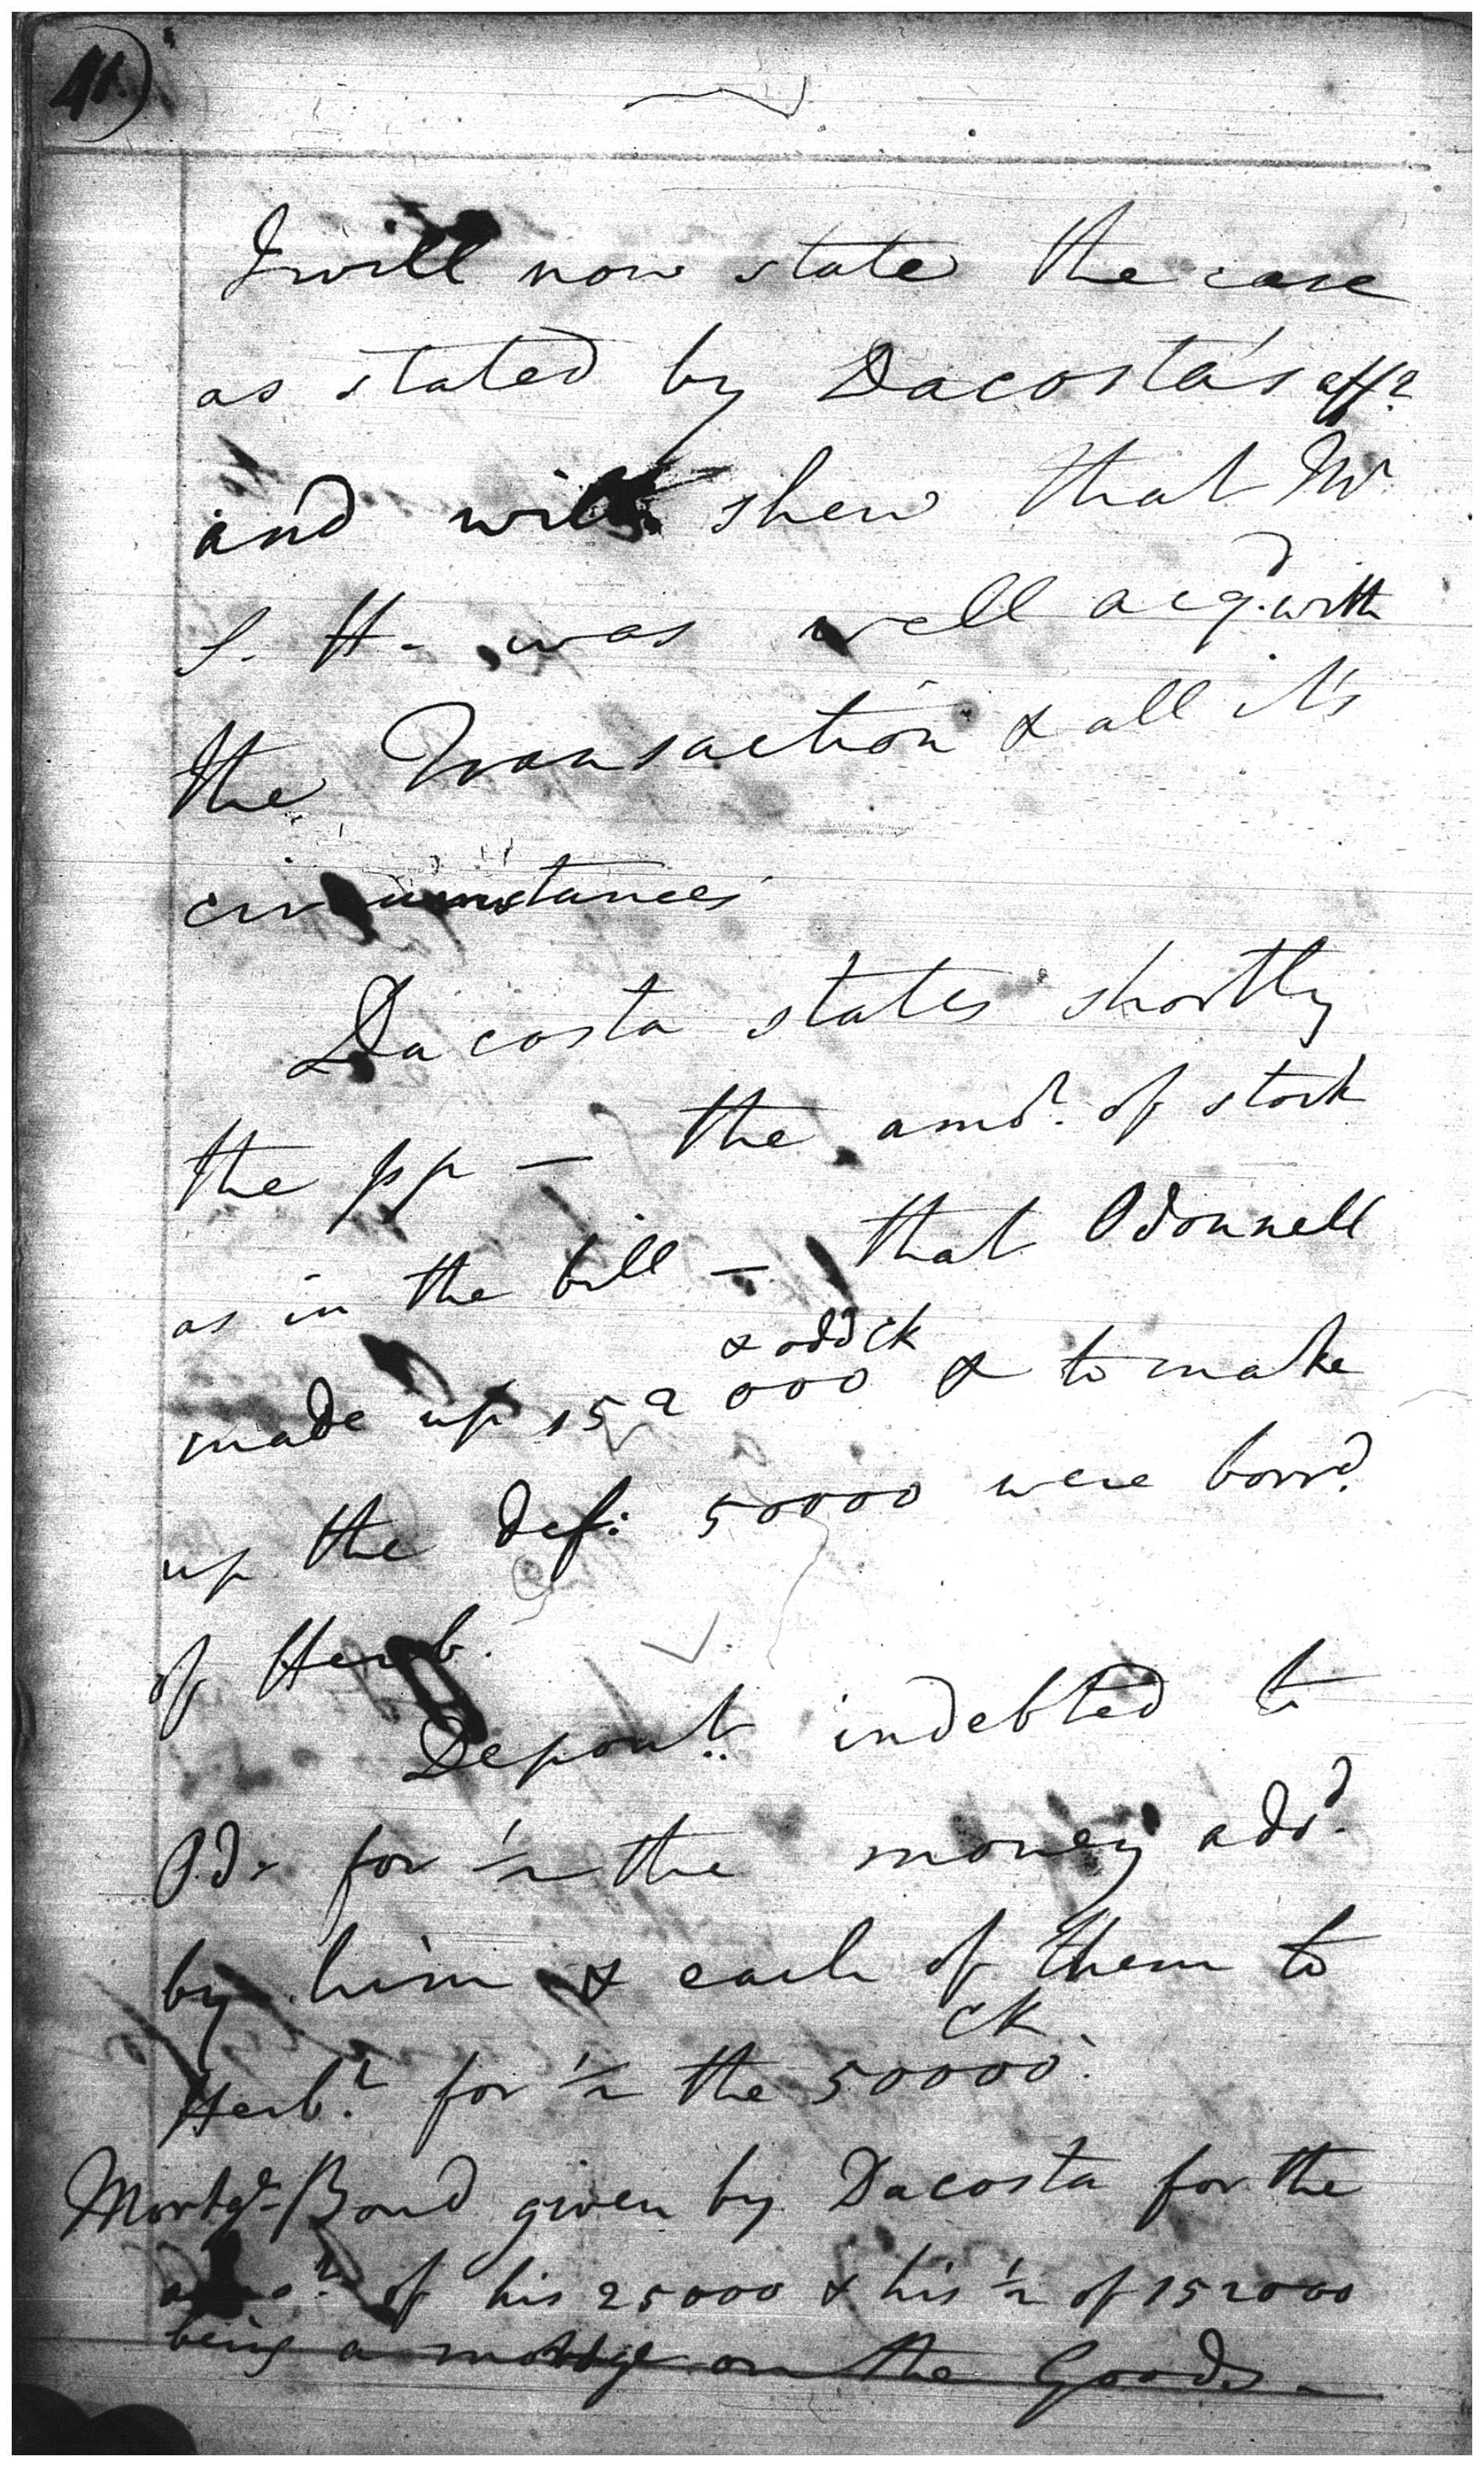 41.
I will now state the case
as stated by Dacosta's afft
and will shew that Mr.
S. H. was well acqd. with
the Transaction & all it's
circumstances
Dacosta states shortly
the pp — the amot. of stock
as in the bill — that Odonnell
& odd ck
made up 152000 & to make
up the def: 50000 were borrd.
of Herb.
Depont. indebted to
Od. for ½ the money add.
by him & each of them to
ck
Herbt. for ½ the 50000.
Mortge. Bond given by Dacosta for the
of his 25000 & his ½ of 152000
being a mortdge on the Goods.